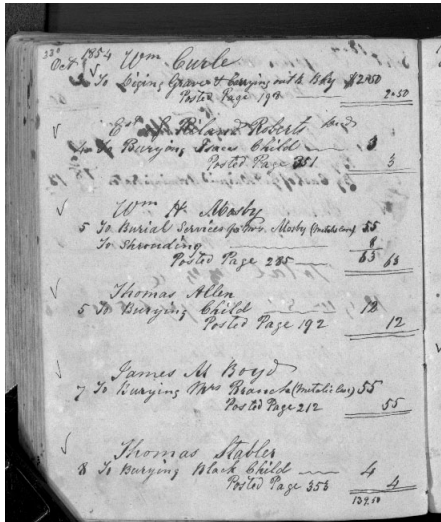 Oct 1854 Wm Curle
3 To Diging Grave & Carrying out B. Bdy $2.50
Posted Page 198 2.50
Est Roland Roberts
4 To Burying Isaacs Child 3
Posted Page 351 3
Wm H. Mosby
5 To Burial Services for Mrs. Mosby (Metalic Case) 55
To Shrouding 8
Posted Page 285 63 63
Thomas Allen
5 To Burying Child 12
Posted Page 192 12
James M Boyd
7 To Burying Mrs Branch (Metalic Case) 55
Posted Page 212 55
Thomas Stabler
8 To Burying Black Child 4
Posted Page 353 4
139.50